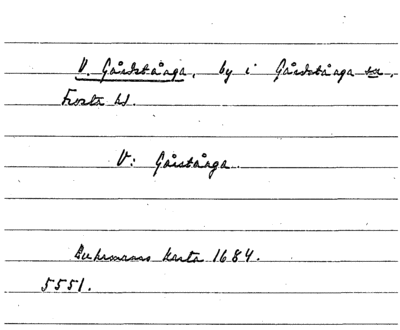 V. Gårdstånga, by i Gårdstånga sn,
Frosta hd.
V: Gårstånga.
Buhrmanns Karta 1684.
5551.